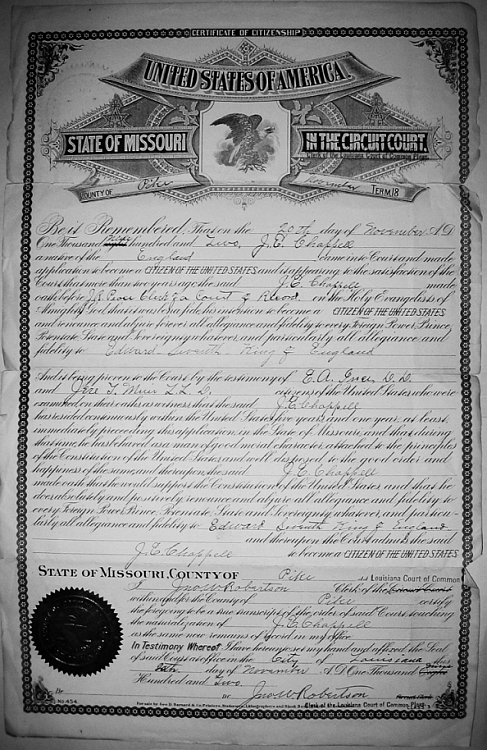 CERTIFICATE OF CITIZENSHIP
UNITED STATES OF AMERICA.
STATE OF MISSOURI
IN THE CIRCUIT COURT.
Clerk of the Louisiana Court of Common Pleas
COUNTY OF Pike
November TERM, 18
Be it Remembered, That on the 20th day of November A.D.
One Thousand Eight hundred and two, J. E. Chappell
a native of the England came into Court and made
application to become a CITIZEN OF THE UNITED STATES and it appearing to the satisfaction of the
Court that more than two years ago the said J. E. Chappell made
oath before Clerk of a Court of Record on the Holy Evangelists of
Almighty God, that it was bona fide, his intention to become a CITIZEN OF THE UNITED STATES
and renounce and abjure forever all allegiance and fidelity to every Foreign Power, Prince,
Potentate, State and Sovereignty whatever, and particularly all allegiance and
fidelity to Edward Seventh King of England
And it being proven to the Court by the testimony of E. A. D. D.
and Jere T. Muir L. L. D. citizens of the United States who were
examined on their oaths as witnesses that the said J. E. Chappell
has resided continuously within the United States five years, and one year, at least,
immediately preceeding this application, in the State of Missouri, and that during
that time, he has behaved as a man of good moral character, attached to the principles
of the Constitution of the United States, and well disposed to the good order and
happiness of the same, and thereupon, the said J. E. Chappell
made oath that he would support the Constitution of the United States, and that he
does absolutely and positively renounce and abjure all allegiance and fidelity to
every Foreign Power, Prince, Potentate, State and Sovereignty whatever, and particu-
larly all allegiance and fidelity to Edward Seventh King of England
and thereupon the Court admits the said
J. E. Chappell to become a CITIZEN OF THE UNITED STATES
STATE OF MISSOURI, COUNTY OF Pike ss Louisiana Court of Common
I, Jno W Robertson Clerk of the Circuit Court
within and for the County of Pike certify
the foregoing to be a true transcript of the order of said Court touching
the naturalization of J. E. Chappell
as the same now remains of record in my office.
In Testimony Whereof I have hereunto set my hand and affixed the Seal
of said Court at office in the City of Louisiana this
day of November A.D. One Thousand Eight
Hundred and two.
Jno W Robertson
Clerk of the Louisiana Court of Common Pleas